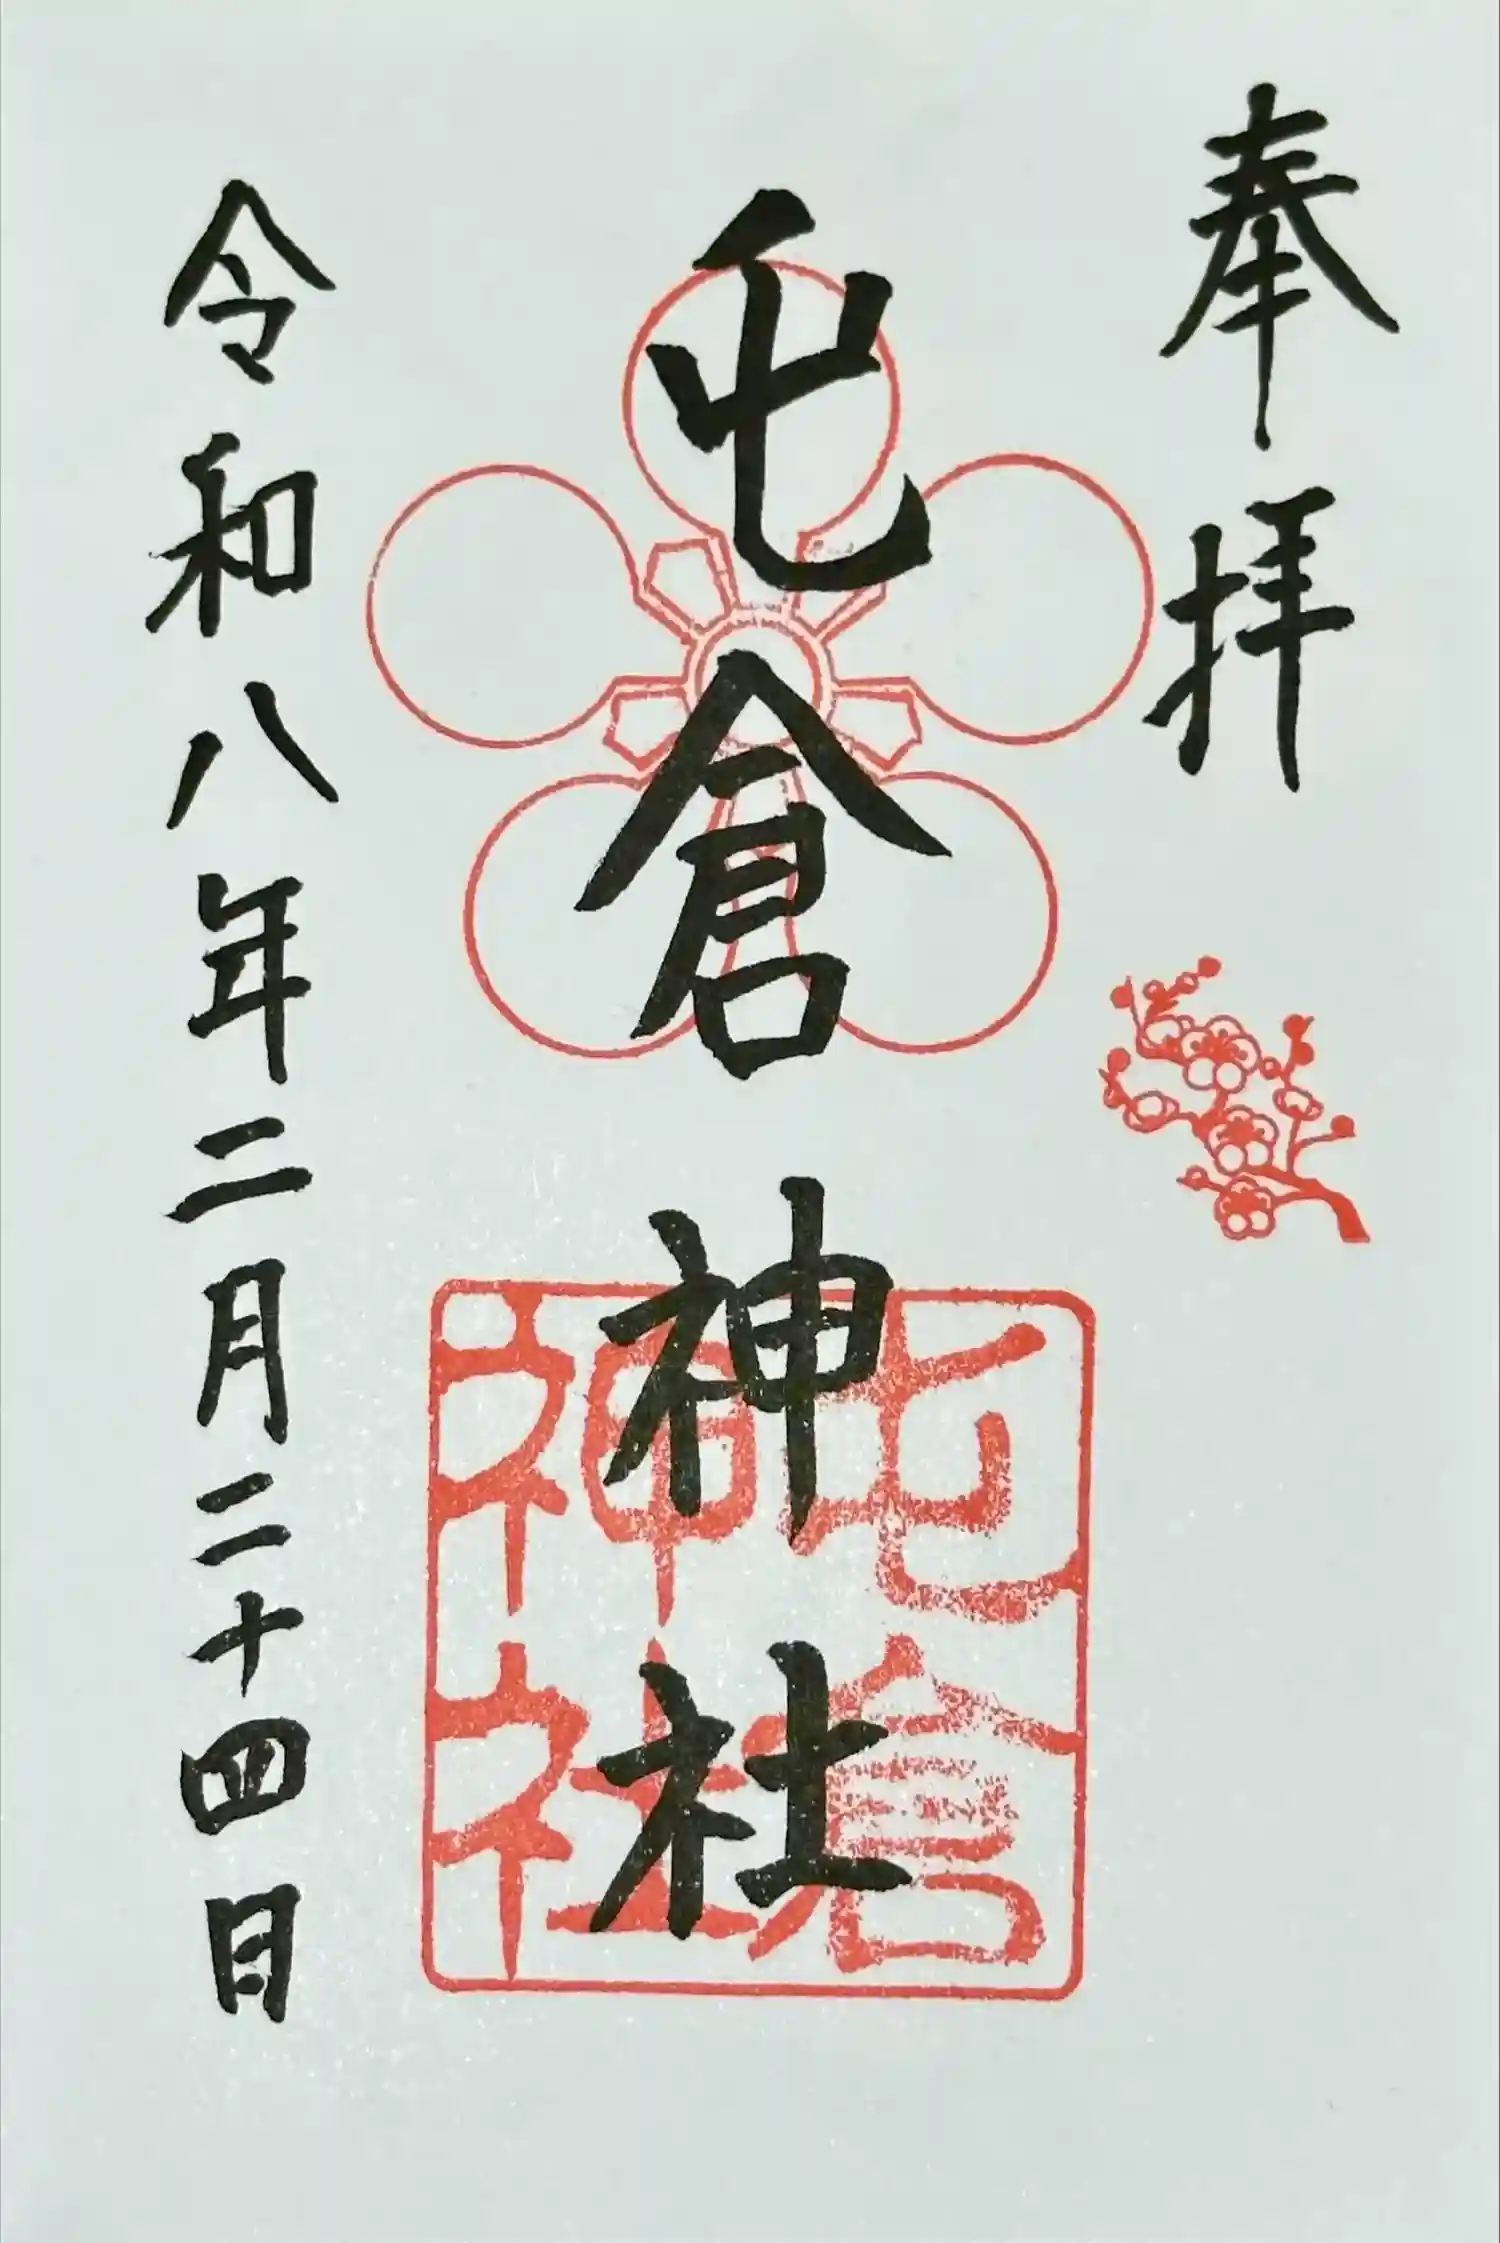 奉拝
屯倉神社
屯倉
神社
令和八年二月二十四日